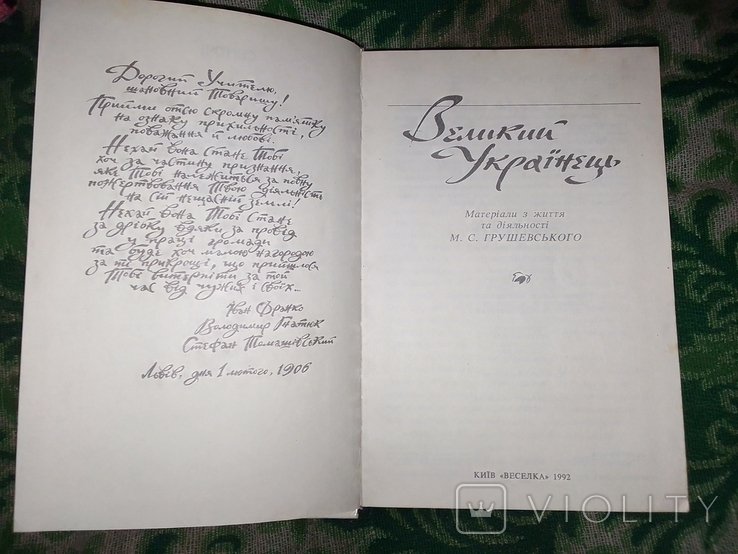 Дорогий Учителю,
шановний Товаришу!
Прийми отсю скромну пам'ятку
на ознаку прихильности,
поважання й любови.
Нехай вона стане Тобі
хоч за частину признання,
яке Тобі належиться за повну
пожертвовання Твою діяльність
на сій нещасній землі!
Нехай вона Тобі стане
за дрібку вдяки за провід
у праці громади
та буде хоч малою нагородою
за ті прикрості, що прийшлося
Тобі витерпіти за той
час від чужих і своїх...
Іван Франко
Володимир Гнатюк
Стефан Томашівський
Львів, дня 1 лютого, 1906
Великий
Українець
Матеріали з життя
та діяльності
М. С. ГРУШЕВСЬКОГО
КИЇВ «ВЕСЕЛКА» 1992
VIOLITY